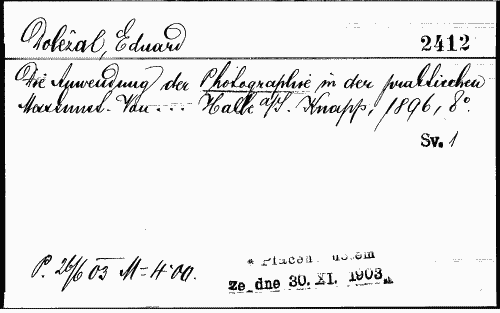 Doležal, Eduard
2412
Die Anwendung der Photographie in der praktischen
Von ... Halle a/S. Knapp, 1896, 8°.
Sv. 1
P. 26/6 03 M = 4·00.
* Placen účtem
ze dne 30. XI. 1903